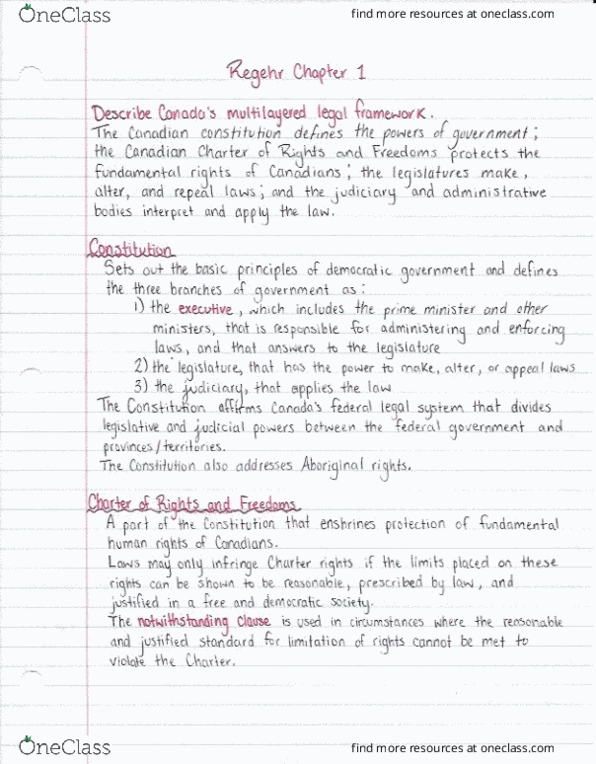 OneClass
find more resources at oneclass.com
Regehr Chapter 1
Describe Canada's multilayered legal framework.
The Canadian constitution defines the powers of government;
the Canadian Charter of Rights and Freedoms protects the
fundamental rights of Canadians; the legislatures make,
alter, and repeal laws; and the judiciary and administrative
bodies interpret and apply the law.
Constitution
Sets out the basic principles of democratic government and defines
the three branches of government as:
1) the executive, which includes the prime minister and other
ministers, that is responsible for administering and enforcing
laws, and that answers to the legislature
2) the legislature, that has the power to make, alter, or appeal laws
3) the judiciary, that applies the law
The Constitution affirms Canada's federal legal system that divides
legislative and judicial powers between the federal government and
provinces/territories.
The Constitution also addresses Aboriginal rights.
Charter of Rights and Freedoms
A part of the Constitution that enshrines protection of fundamental
human rights of Canadians.
Laws may only infringe Charter rights if the limits placed on these
rights can be shown to be reasonable, prescribed by law, and
justified in a free and democratic society.
The notwithstanding clause is used in circumstances where the reasonable
and justified standard for limitation of rights cannot be met to
violate the Charter.
OneClass
find more resources at oneclass.com